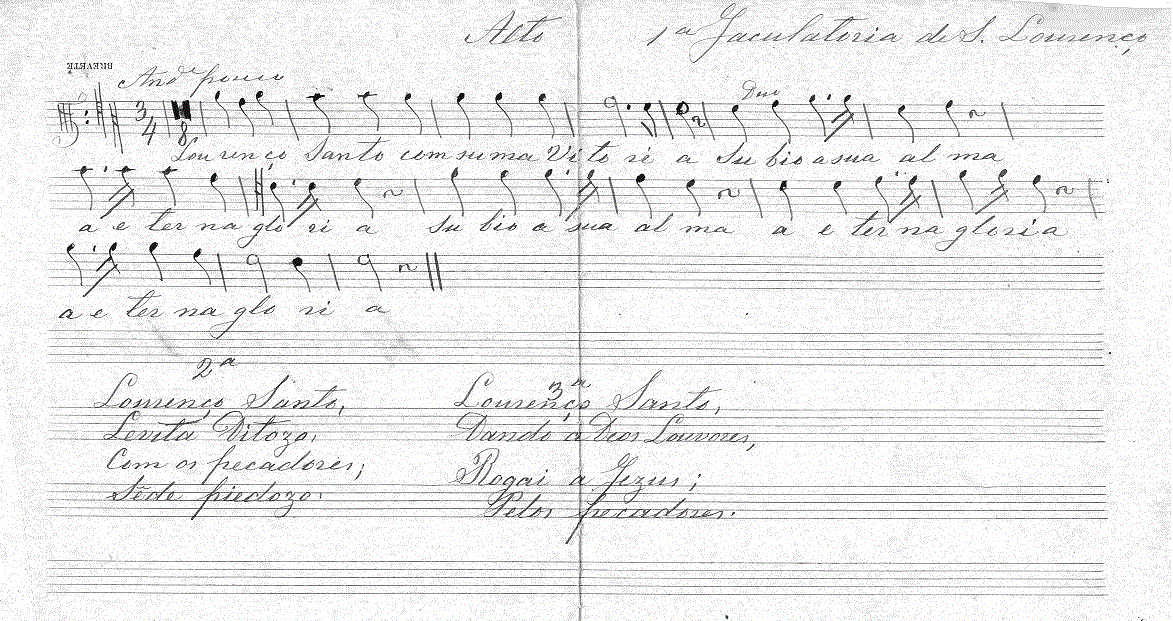 Alto 1ª Jaculatoria de S. Lourenço
BREVETE
And.e pouco
3
4
8
Duo
Lou renço Santo com suma Vi to ri a Su bio a sua al ma
a e ter na glo ri a su bio a sua al ma a e ter na gloria
a e ter na glo ri a
2ª
Lourenço Santo,
Levita Ditozo,
Com os pecadores;
Sêde piedozo.
3ª
Lourenço Santo,
Dando a Deos Louvores,
Rogai a Jezus;
Pelos pecadores.